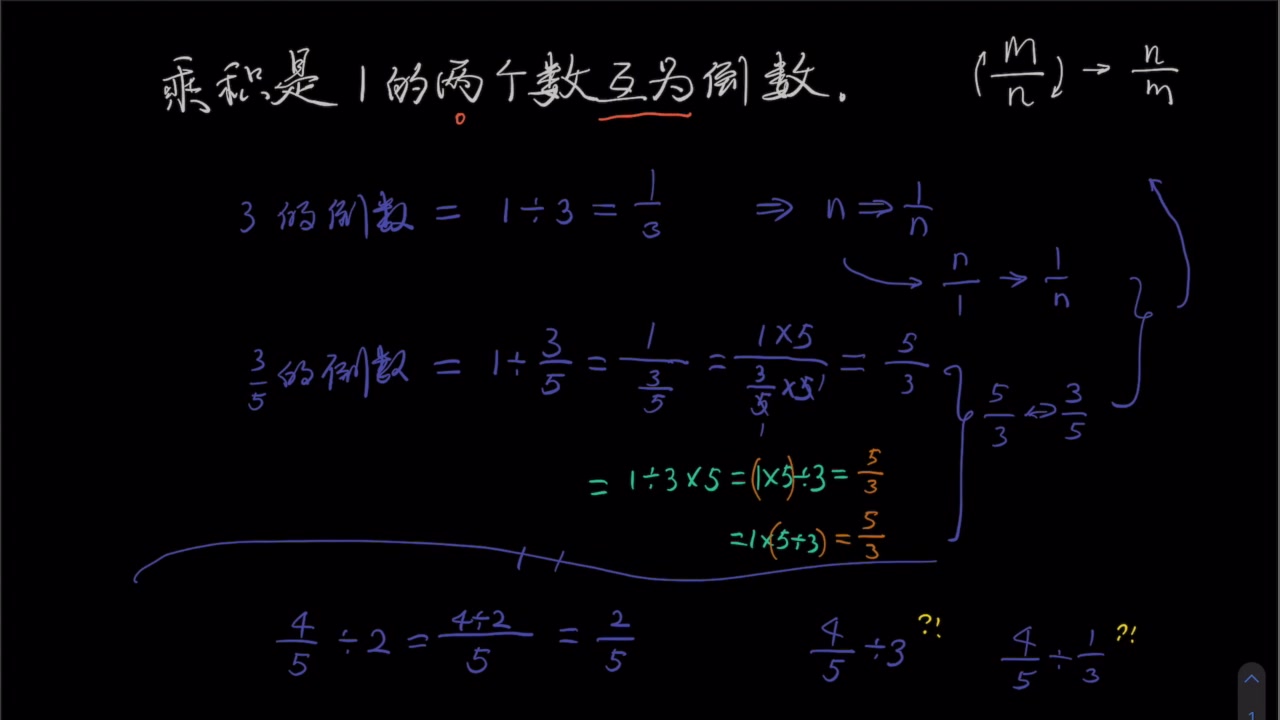 乘积是1的两个数互为倒数. (m/n) → n/m
3的倒数 = 1÷3 = 1/3 ⇒ n ⇒ 1/n
n/1 → 1/n
3/5的倒数 = 1÷3/5 = 1/(3/5) = (1×5)/(3/5×5) = 5/3
5/3 ↔ 3/5
= 1÷3×5 = (1×5)÷3 = 5/3
=1×(5÷3) = 5/3
4/5 ÷2 = (4÷2)/5 = 2/5 4/5 ÷3 ?! 4/5 ÷ 1/3 ?!
1